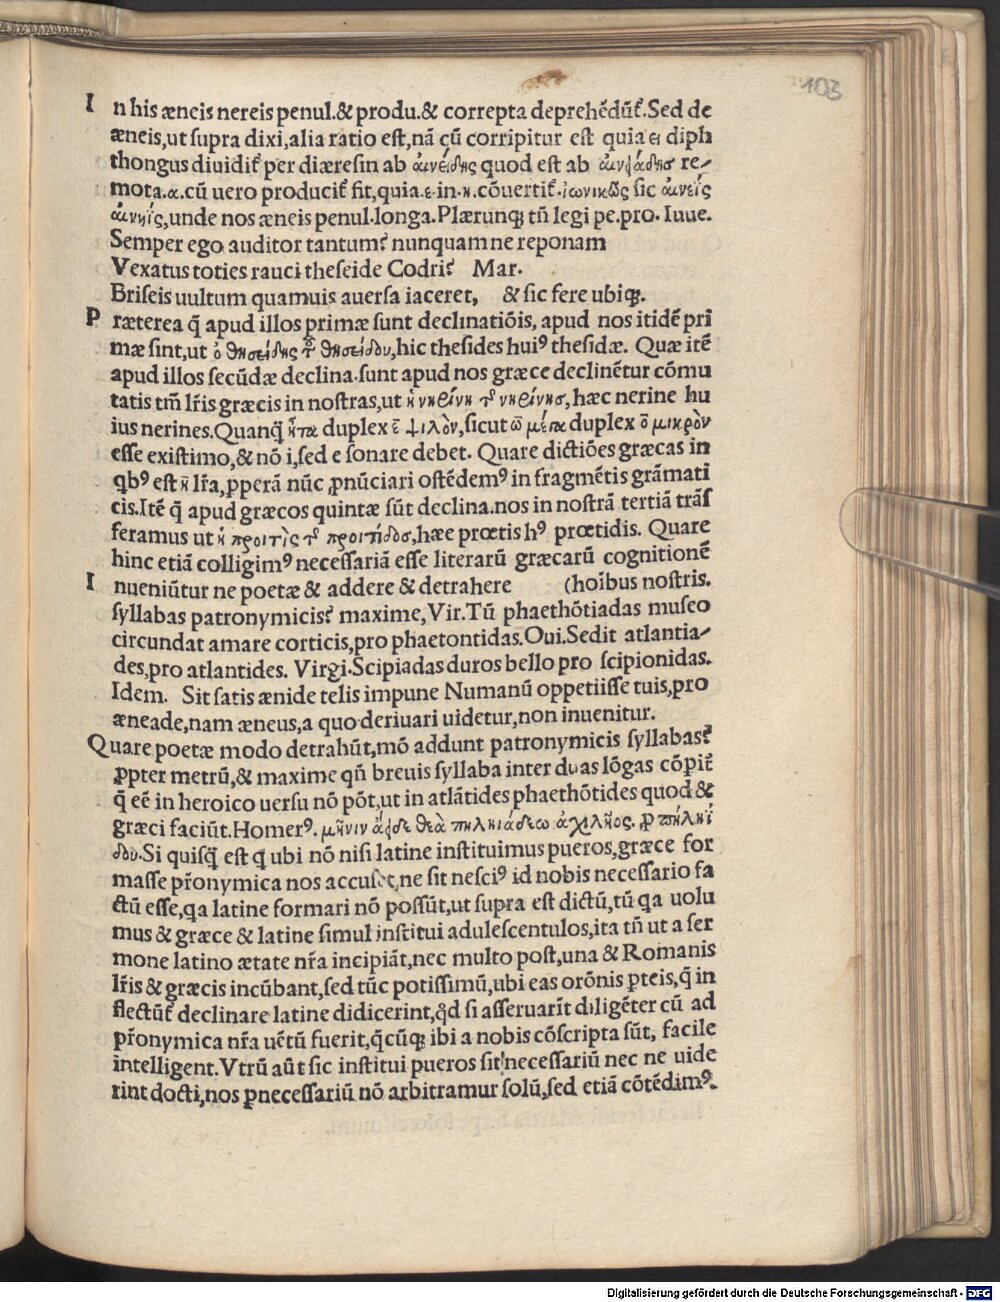 103
I n his æneis nereis penul.& produ.& correpta deprehēdūt̃.Sed de
æneis,ut supra dixi,alia ratio est,nā cū corripitur est quia ει diph
thongus diuidit̃ per diæresin ab αἰνείδης quod est ab αἰνεάδησ re-
mota.α.cū uero producit̃ fit,quia.ε.in.η.cōuertit̃.ἰωνικῶς sic αἰνεΐς
αἰνηΐς,unde nos æneis penul.longa.Plærunq; tñ legi pe.pro.Iuue.
Semper ego auditor tantum? nunquam ne reponam
Vexatus toties rauci theseide Codri? Mar.
Briseis uultum quamuis auersa iaceret, & sic fere ubiq;.
P ræterea q̃ apud illos primæ sunt declinatiōis, apud nos itidē pri
mæ sint,ut ὁ θησείδης τοῦ θησείδου,hic thesides huiꝰ thesidæ. Quæ itē
apud illos secūdæ declina.sunt apud nos græce declinētur cōmu
tatis tm̃ lr̃is græcis in nostras,ut ἡ νηρίνη τῆσ νηρίνησ, hæc nerine hu
ius nerines.Quanq̃ ἦτα duplex ē ψιλὸν,sicut ω̄ μέγα duplex ō μικρὸν
esse existimo,& nō i,sed e sonare debet. Quare dictiōes græcas in
qbꝰ est η lr̃a, ꝑperā nūc ꝓnūciari ostēdemꝰ in fragmētis grāmati
cis.Itē q̃ apud græcos quintæ sūt declina.nos in nostrā tertiā trās
feramus ut ἡ προιτὶς τῆσ προιτίδοσ,hæc prœtis hꝰ prœtidis. Quare
hinc etiā colligimꝰ necessariā esse literarū græcarū cognitionē
I nueniūtur ne poetæ & addere & detrahere (hoĩbus nostris.
syllabas patronymicis? maxime,Vir.Tū phaethōtiadas museo
circundat amare corticis,pro phaetontidas.Oui.Sedit atlantia-
des,pro atlantides. Virgi.Scipiadas duros bello pro scipionidas.
Idem. Sit satis ænide telis impune Numanū oppetiisse tuis,pro
æneade,nam æneus,a quo deriuari uidetur,non inuenitur.
Quare poetæ modo detrahūt,mō addunt patronymicis syllabas?
ꝓpter metrū,& maxime qñ breuis syllaba inter duas lōgas cōpit̃
q̃ eē in heroico uersu nō pōt,ut in atlātides phaethōtides quod &
græci faciūt.Homerꝰ. μῆνιν ἄειδε θεὰ πηληιάδεω ἀχιλῆος. ꝓ πηληΐ
δου.Si quisq̃ est q ubi nō nisi latine instituimus pueros,græce for
masse pr̃onymica nos accuset,ne sit nesciꝰ id nobis necessario fa
ctū esse,qa latine formari nō possūt,ut supra est dictū,tū qa uolu
mus & græce & latine simul institui adulescentulos,ita tñ ut a ser
mone latino ætate nr̃a incipiāt,nec multo post,una & Romanis
lr̃is & græcis incūbant,sed tūc potissimū,ubi eas orōnis ꝑteis,q̃ in
flectūt̃ declinare latine didicerint,qd̃ si asseruarīt diligēter cū ad
pr̃onymica nr̃a uētū fuerit,q̃cūq; ibi a nobis cōscripta sūt, facile
intelligent.Vtrū aūt sic institui pueros sit necessariū nec ne uide
rint docti,nos ꝑnecessariū nō arbitramur solū,sed etiā cōtēdimꝰ.
Digitalisierung gefördert durch die Deutsche Forschungsgemeinschaft - DFG